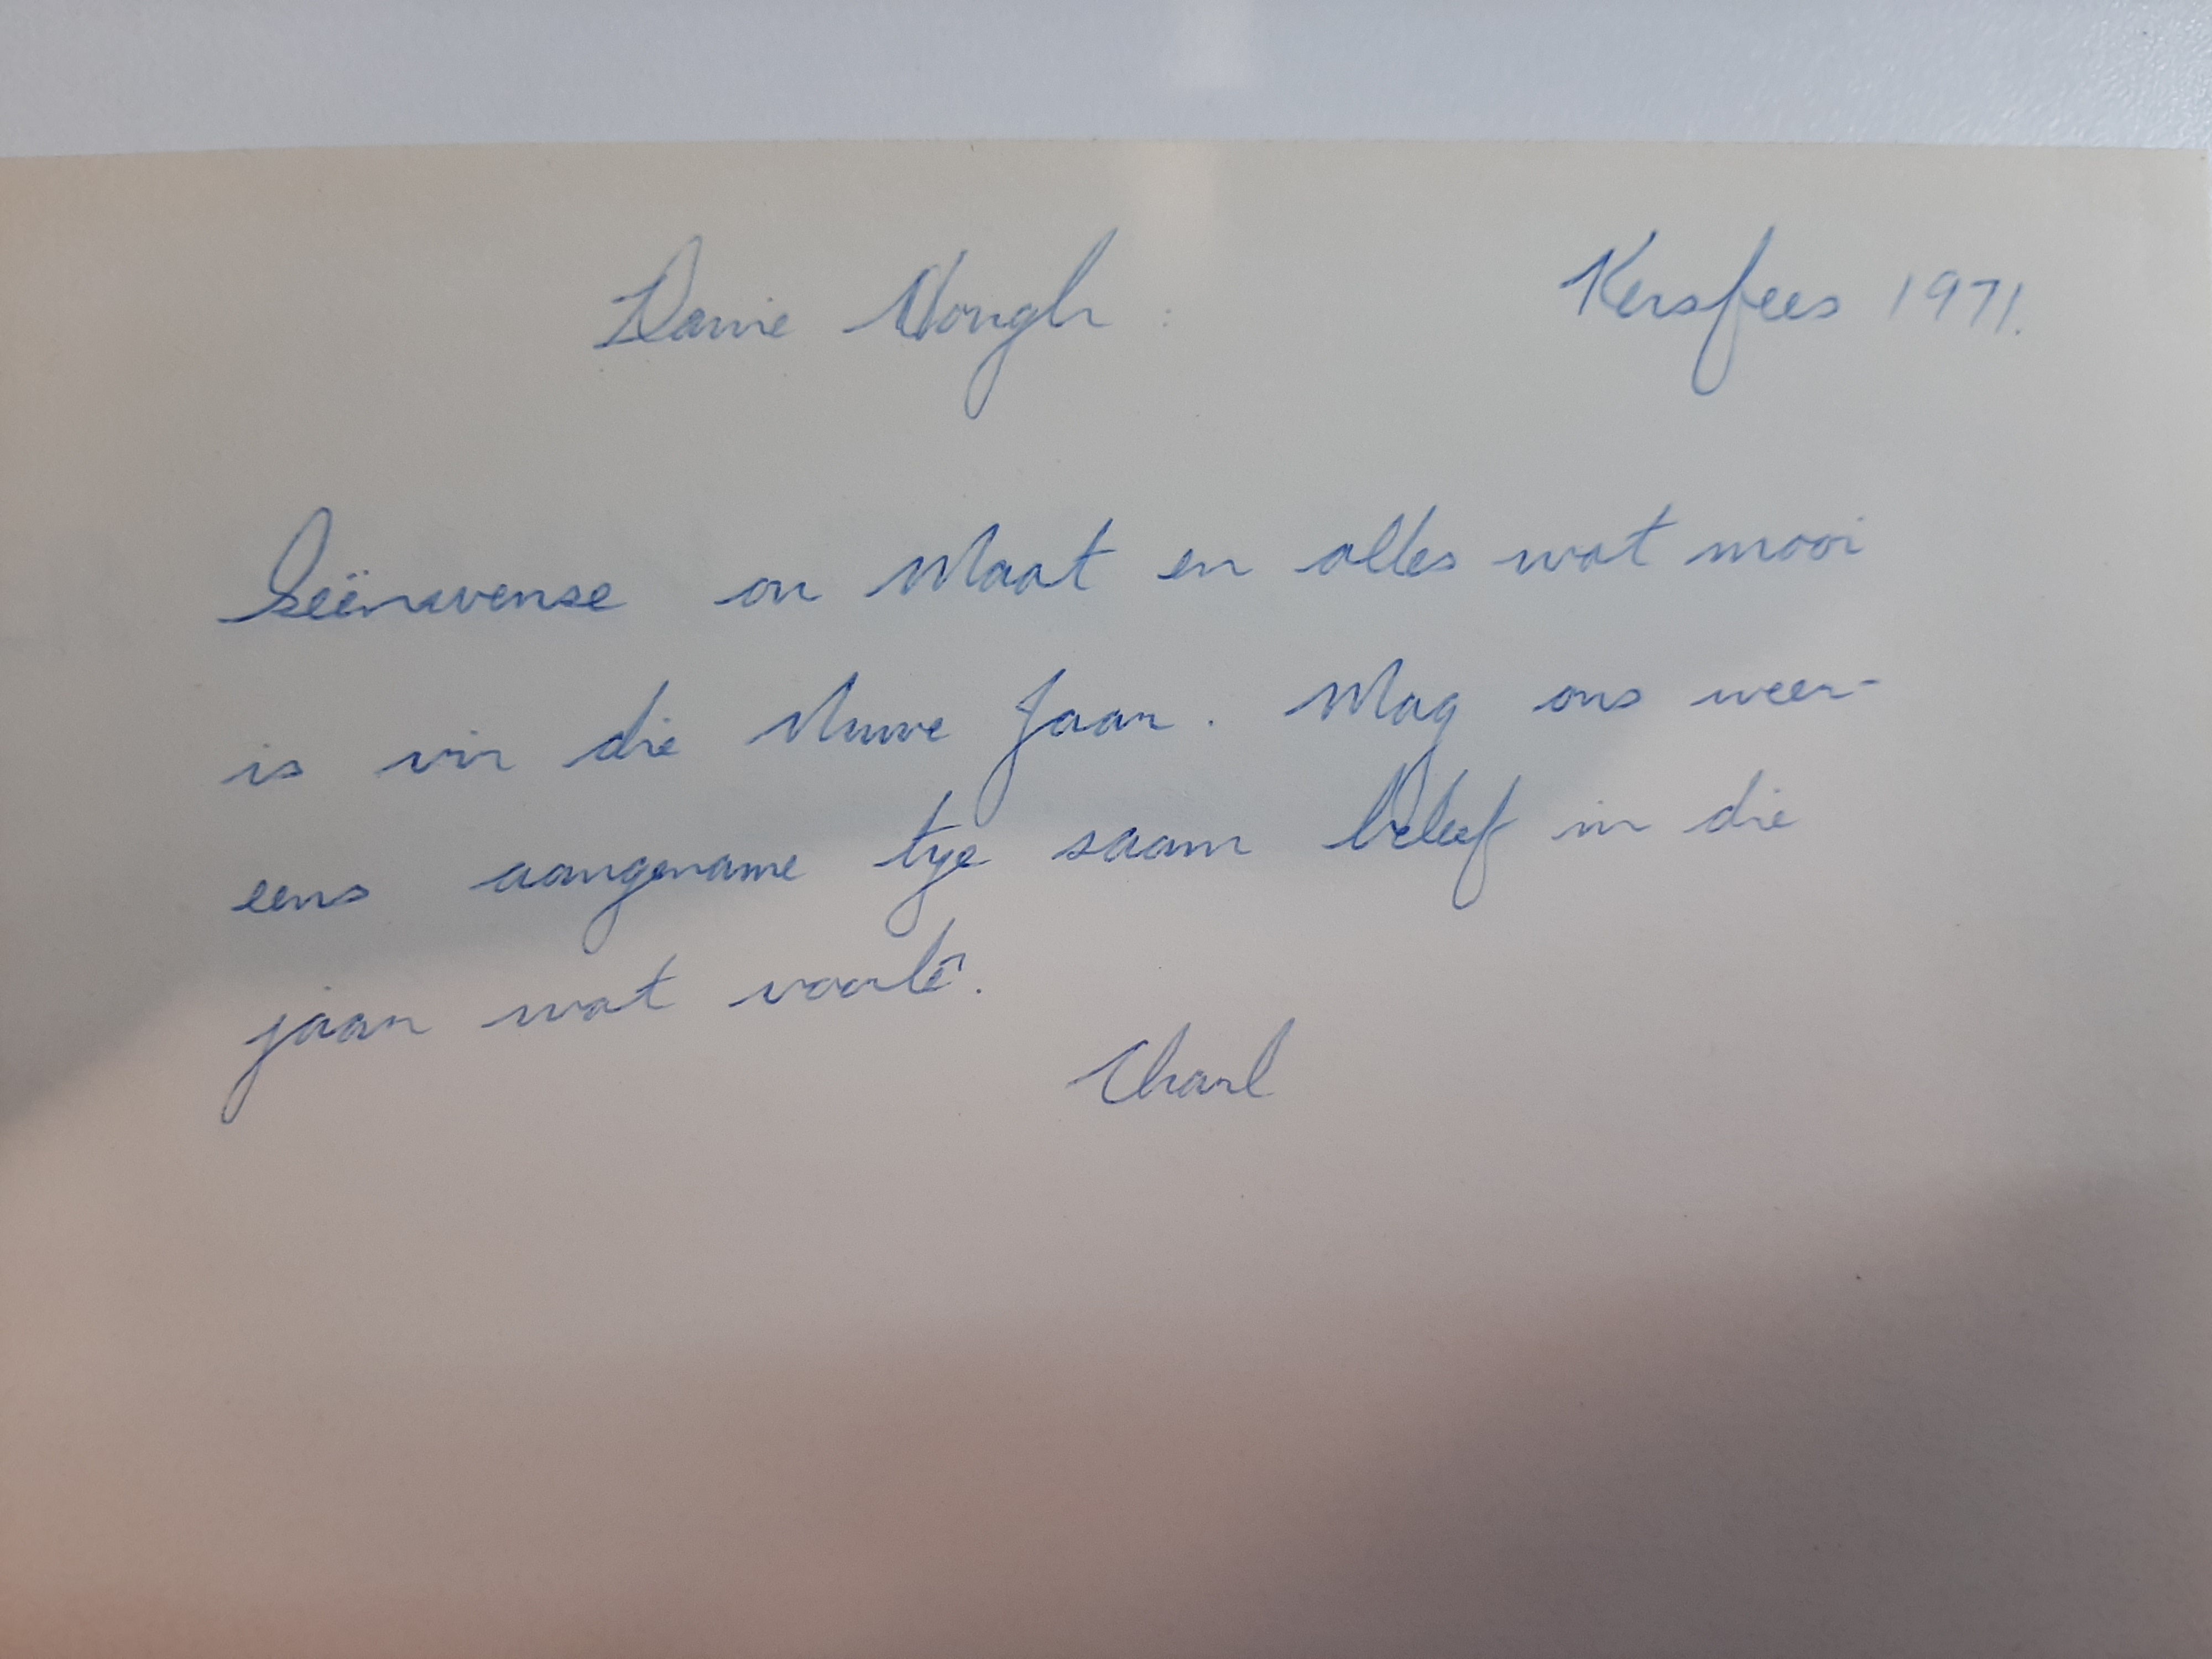 Danie Hough : Kersfees 1971.
Seënwense ou Maat en alles wat mooi
is vir die Nuwe Jaar. Mag ons weer-
eens aangename tye saam beleef in die
jaar wat voorlê.
Charl